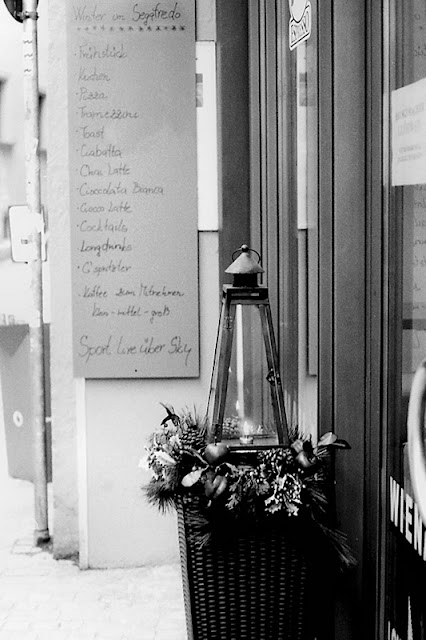 Winter im Segafredo
· Frühstück
· Kuchen
· Pizza
· Tramezzini
· Toast
· Ciabatta
· Chai Latte
· Cioccolata Bianca
· Ciocco Latte
· Cocktails
· Longdrinks
· G'spritzter
· Kaffee zum Mitnehmen
klein-mittel-groß
Sport Live über Sky
WIEN